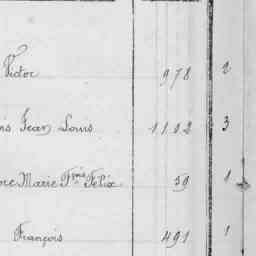 Victor 978 2
is Jean Louis 1102 3
ore Marie Fçois Felix 59 1
François 491 1